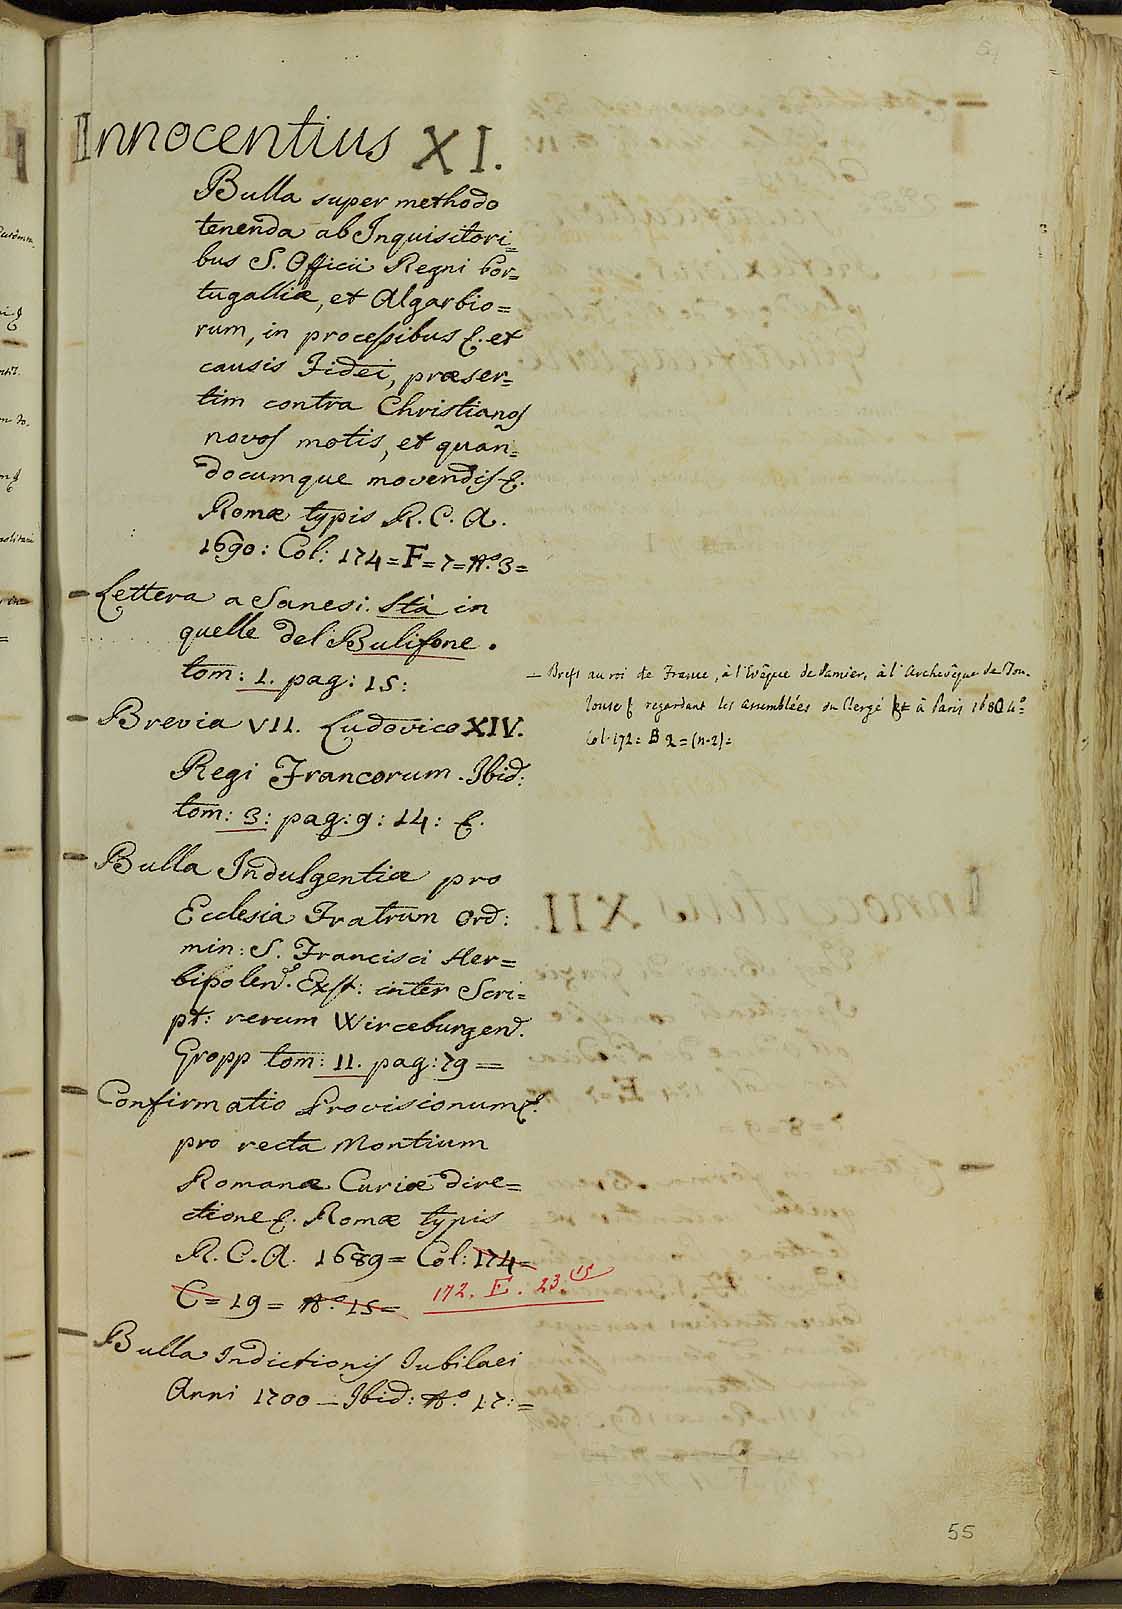 Innocentius XI.
Bulla super methodo
tenenda ab Inquisitori=
bus S. Officii Regni Por=
tugalliæ, et Algarbio=
rum, in processibus &. et
causis Fidei, præser=
tim contra Christianos
novos motis, et quan=
documque movendis &.
Romæ typis R. C. A.
1690: Col: 174=F=7=N.º3=
Lettera a Sanesi. Stà in
quelle del Bulifone.
tom: 1. pag: 15:
Brevia VII. Ludovico XIV.
Regi Francorum. Ibid:
tom: 3: pag: 9: 14: &.
Bulla Indulgentiæ pro
Ecclesia Fratrum Ord:
min: S. Francisci Her=
bipolens. Exst: inter Scri=
pt: rerum Wirceburgens.
Gropp tom: II. pag: 79=
Confirmatio Provisionum &.
pro recta Montium
Romanæ Curiæ dire=
ctione &. Romæ typis
R. C. A. 1689= Col: 174=
C=19= N.º 15=
172. E. 23. 15
Bulla Indictionis Iubilaei
Anni 1700 — Ibid: N.º 17:=
— Brefs au roi de France, à l'Evêque de Pamier, à l'Archevêque de Tou-
louse & regardant les assemblées du Clergé à Paris 1680 4º=
Col. 172= B 2=(n-2)=
55